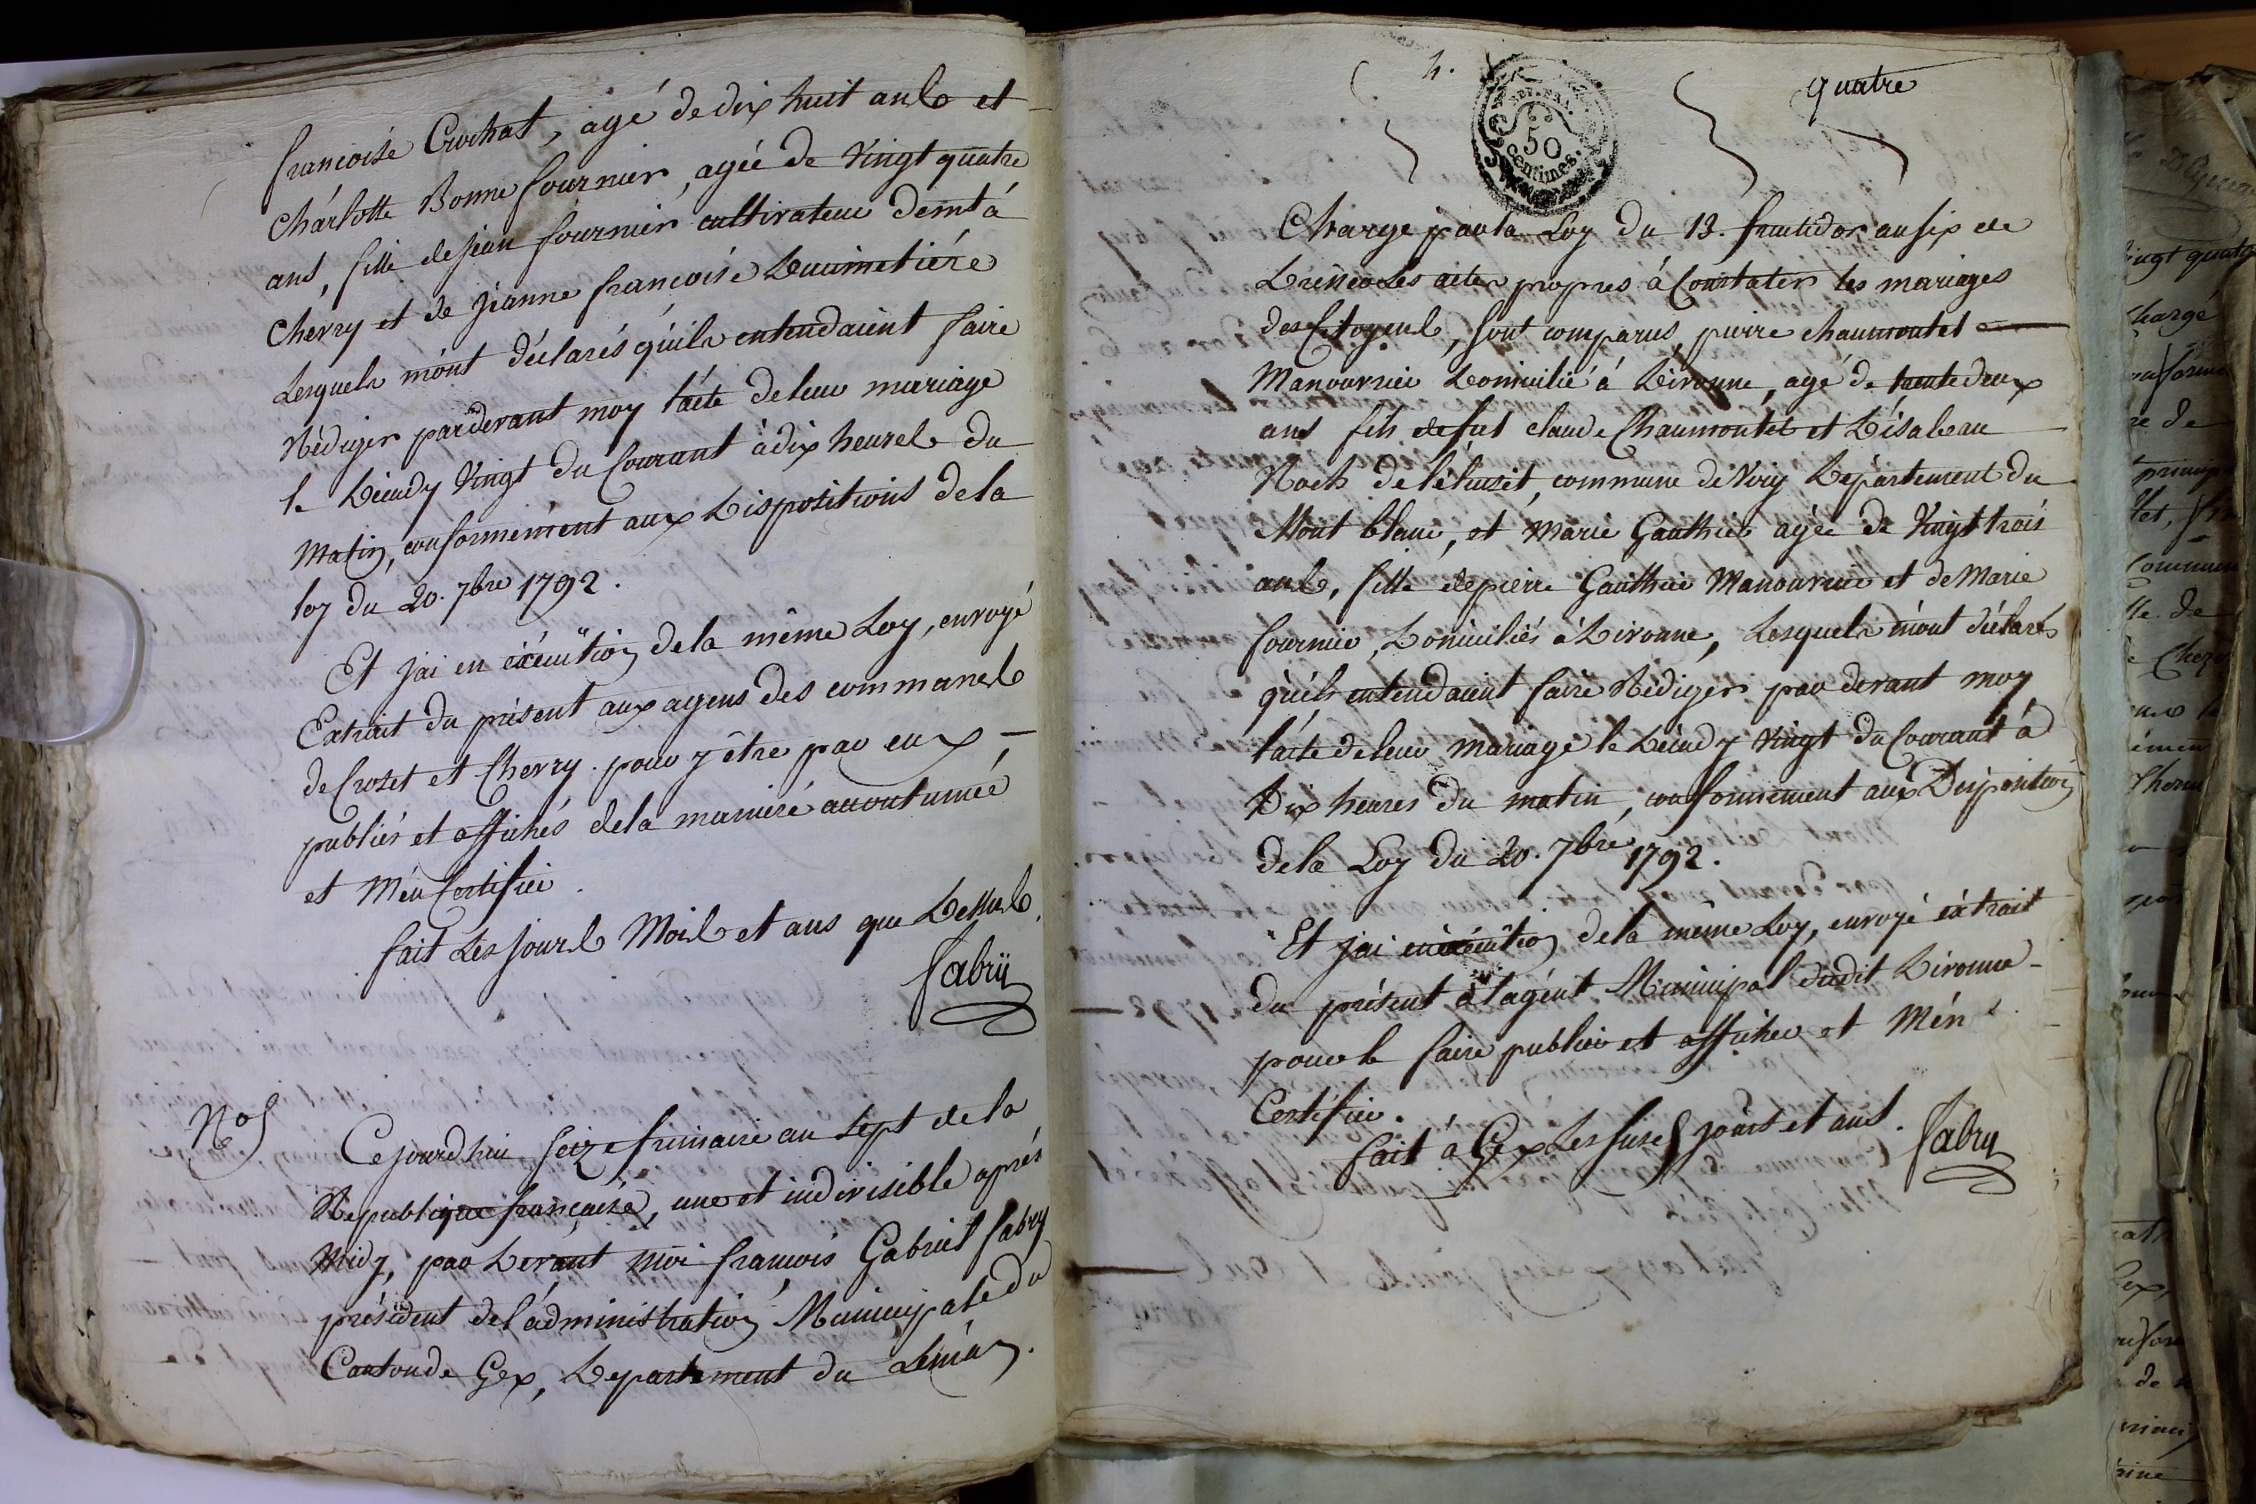 francoise Crochat, agé de dix huit ans et
Charlotte Bonne fournier, agée de Vingt quatre
ans, fille de jean fournier cultivateur demt à
Chevry et de Jeanne francoise Ducimetiére
Lesquels m'ont déclarés qu'ils entendaient faire
Rédiger pardevant moy l'acte de leur mariage
le Décady Vingt du Courant à dix heures du
Matin, conformément aux Dispositions de la
loy du 20. 7bre 1792.
Et jai en éxécution de la même Loy, envoyé
Extrait du présent aux agens des communes
de Crozet et Chevry. pour y être par eux
publiés et affichés de la maniére accoutumée
et M'en Certifier.
fait Les jours Mois et ans que Dessus.
fabry
No 5
Cejourdhui seize frimaire an sept de la
Republique française, une et indivisible aprés
Midy, par Devant Moi francois Gabriel fabry
président de l'administration Municipale du
Canton de Gex, Departement du Léman.
4.
quatre
50
centimes.
Chargé par la Loy du 13. fructidor an six de
Dresser les actes propres à Constater les mariages
des Citoyens, sont comparus pierre Chaumontet
Manouvrier Domicilié à Divonne, agé de trente deux
ans fils de fut claude Chaumontet et D'isabeau
Roch de commune de Viry Département du
Mont blanc, et Marie Gauthier agée de Vingt trois
ans, fille de pierre Gauthier Manouvrier et de Marie
fournier, Domiciliés à Divonne, Lesquels m'ont déclarés
qu'ils entendaient faire Rédiger par devant moy
l'acte de leur mariage le Décady vingt du Courant à
Dix heures du matin, conformément aux Disposition
de la Loy du 20. 7bre 1792.
Et jai en éxécution de la même Loy, envoyé éxtrait
du présent à l'agent Municipal dudit Divonne
pour le faire publier et afficher et M'en
Certifier.
fait à Gex Les susd jours et ans.
fabry